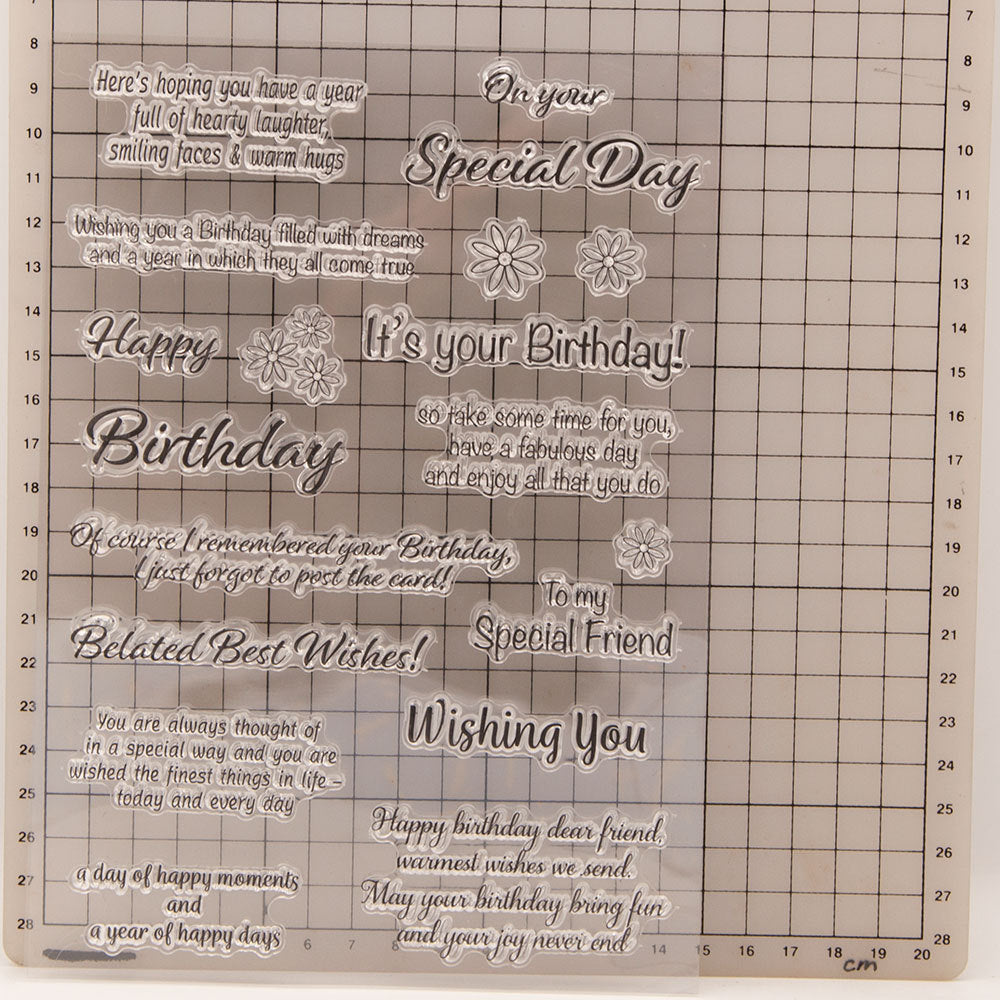 Here's hoping you have a year
full of hearty laughter,
smiling faces & warm hugs
On your
Special Day
Wishing you a Birthday filled with dreams
and a year in which they all come true
Happy
Birthday
It's your Birthday!
so take some time for you,
have a fabulous day
and enjoy all that you do
Of course I remembered your Birthday,
I just forgot to post the card!
To my
Special Friend
Belated Best Wishes!
Wishing You
You are always thought of
in a special way and you are
wished the finest things in life –
today and every day
Happy birthday dear friend,
warmest wishes we send.
May your birthday bring fun
and your joy never end
a day of happy moments
and
a year of happy days
8
9
10
11
12
13
14
15
16
17
18
19
20
21
22
23
24
25
26
27
28
7
8
9
10
11
12
13
14
15
16
17
18
19
20
21
22
23
24
25
26
27
28
6 7 8 14 15 16 17 18 19 20
cm